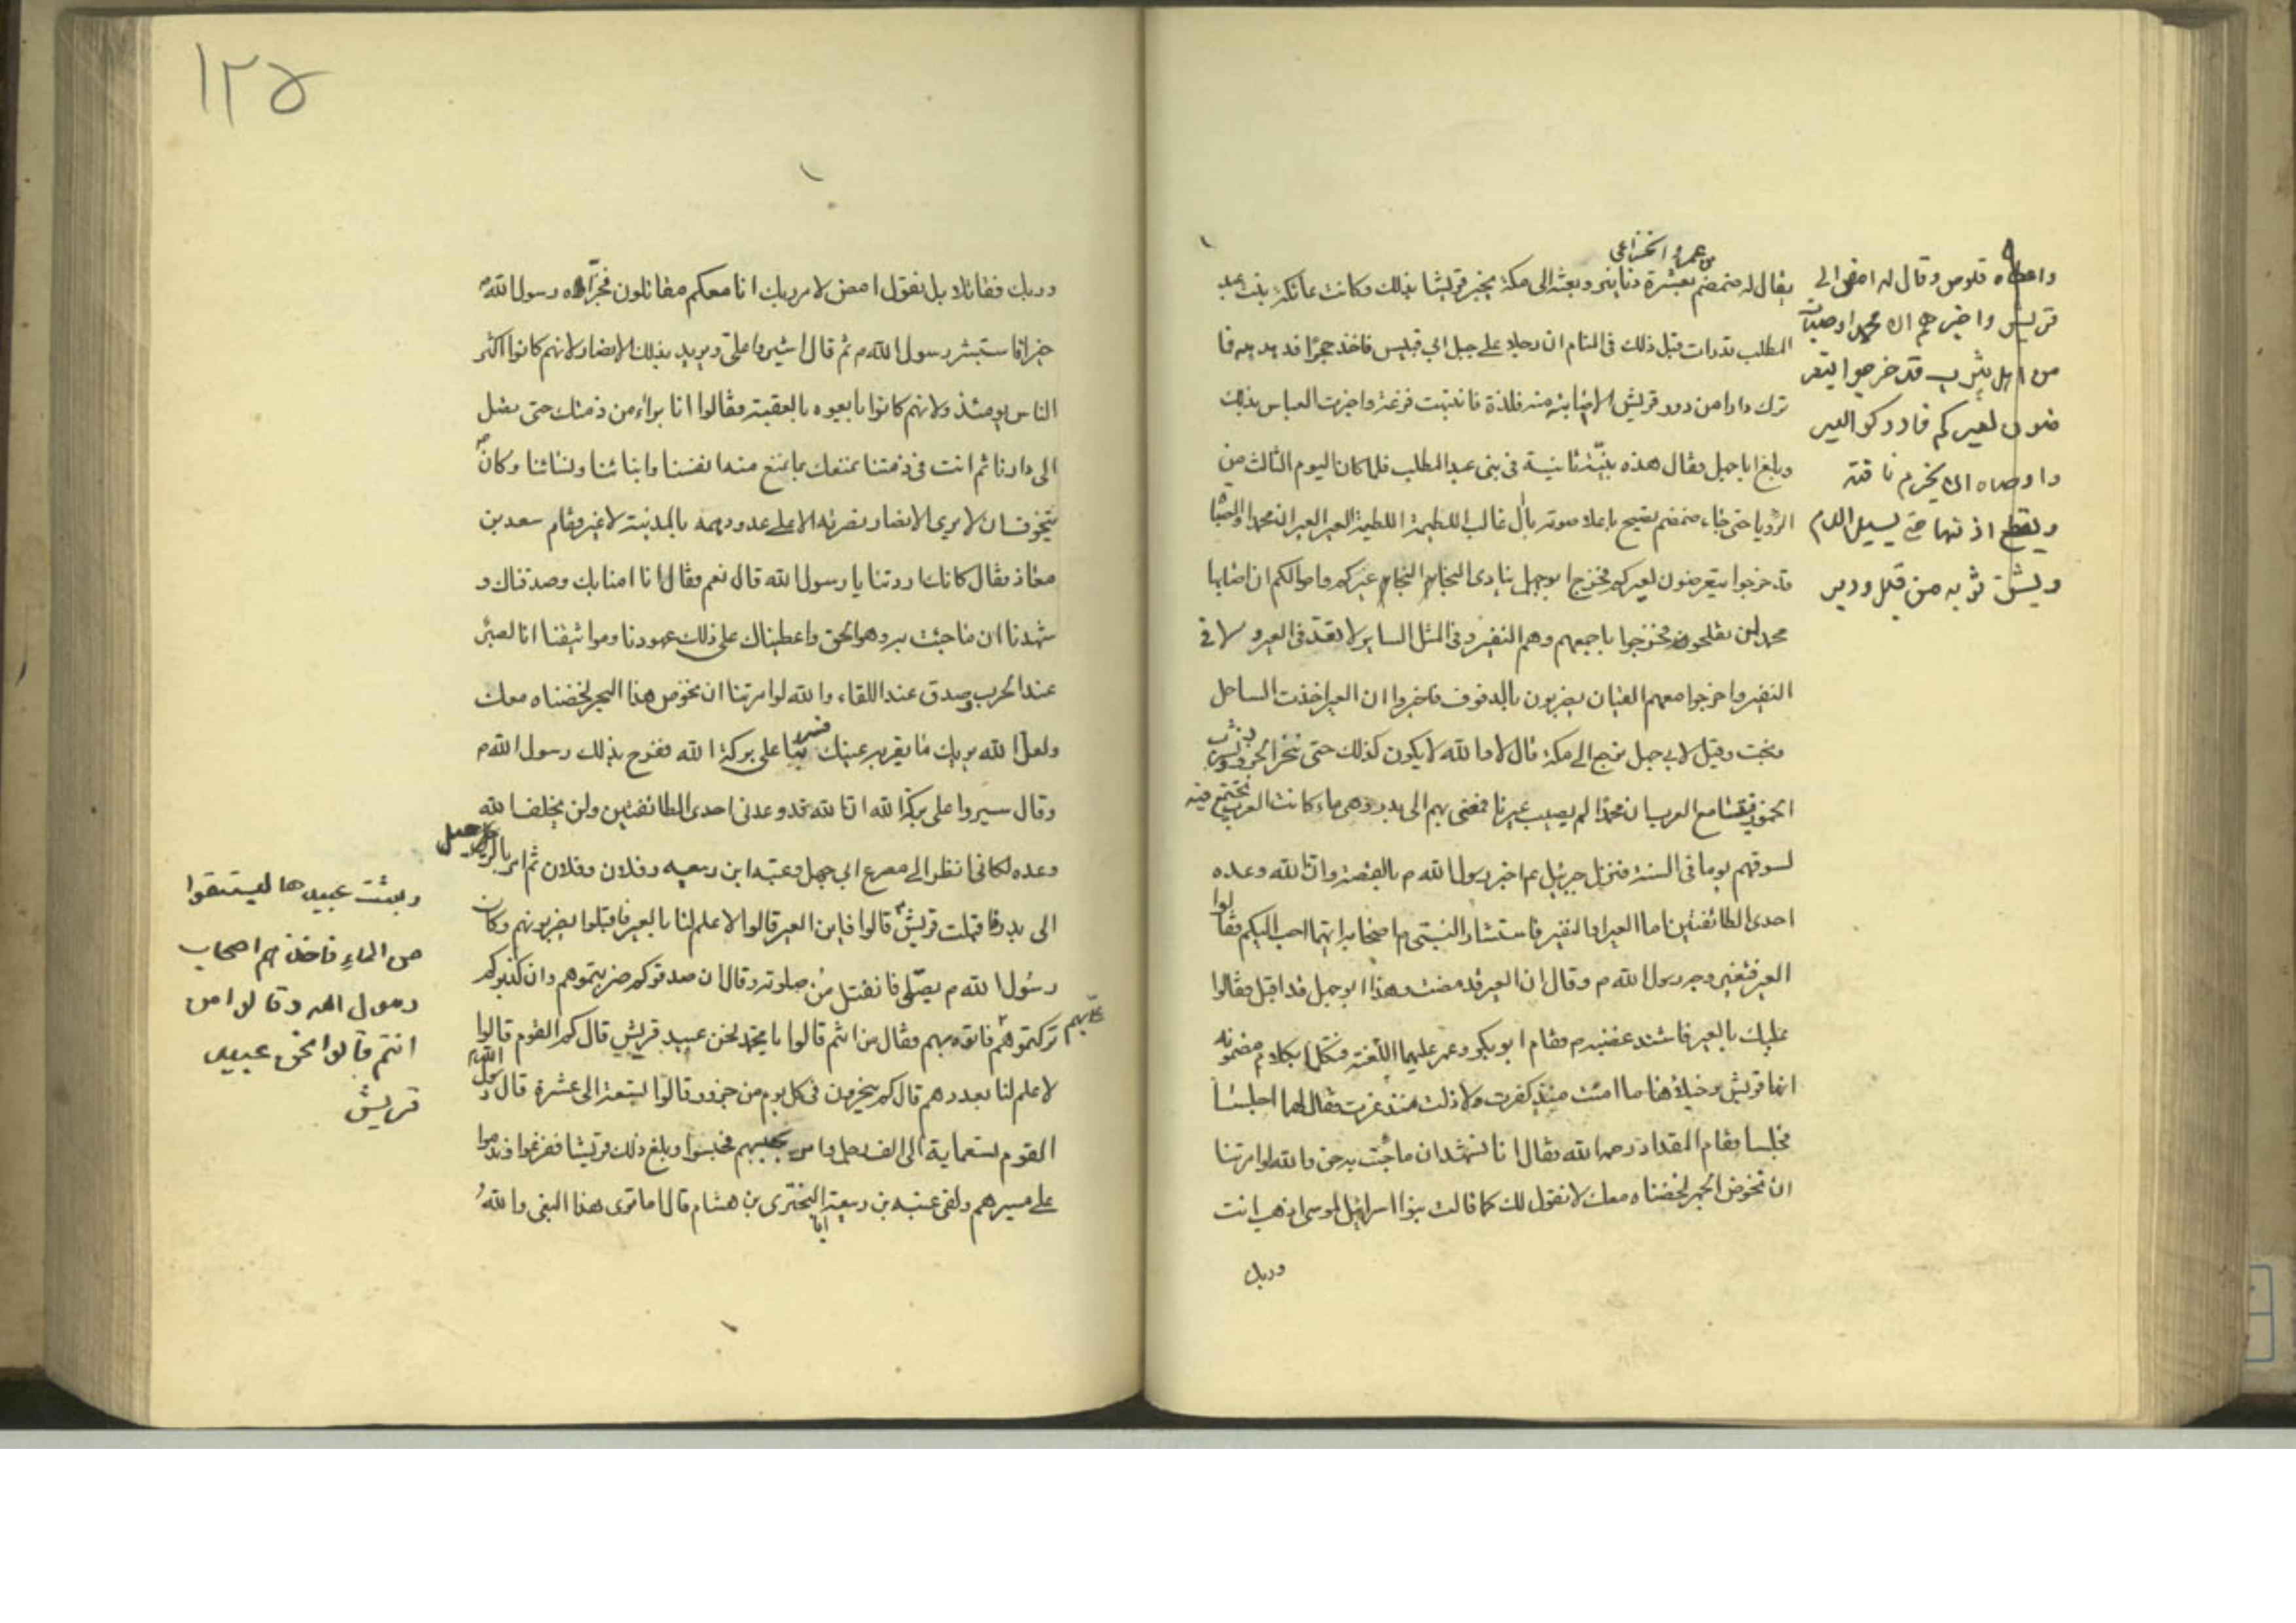 من عمرو الخزاعي
يقال له ضمضم بعشرة دنانير وبعثه الى مكة يخبر قريشا بذلك وكانت عاتكة بنت عبد
المطلب قد رات قبل ذلك في المنام ان رجلا على جبل ابي قبيس فاخذ حجرا فدهدهه فا
ترك دارا من دور قريش الا اصابته منه فلذة فانتبهت فزعة واخبرت العباس بذلك
وبلغ اباجهل فقال هذه نبيّة ثانية في بني عبد المطلب فلما كان اليوم الثالث من
الرؤيا حتى جاء ضمضم يصيح باعلا صوته يال غالب اللطيمة اللطيمة العير العير ان محمدا والصباة
قد خرجوا يتعرضون لعيركم فخرج ابوجهل ينادى النجاء النجاء عيركم واموالكم ان اصابها
محمد لن تفلحوا فخرجوا باجمعهم وهم النفير وفي المثل الساير لا يعد في العير ولا في
النفير واخرجوا معهم القيان يضربون بالدفوف فاخبروا ان العير اخذت الساحل
ونجت وقيل لابي جهل نرجع الى مكة قال لا والله لا يكون كذلك حتى ننحر الجزور ونشرب
الخمور فيتسامع العرب ان محمدا لم يصب عيرنا فمضى بهم الى بدر وهي ماء كانت العرب تجتمع فيه
لسوقهم يوما في السنة فنزل جبرئيل ع اخبر رسول الله م بالقصة وان الله وعده
احدى الطائفتين اما العير او النفير فاستشار النبي م اصحابه ايتهما احب اليكم فقالوا
العير فتغير وجه رسول الله م وقال ان العير قد مضت وهذا ابو جهل قد اقبل فقالوا
عليك بالعير فاشتد غضبه م فقام ابو بكر وعمر عليهما اللعنة فتكلما بكلام مضمونه
انها قريش وخيلاؤها ما امنت منذ كفرت ولا ذلت منذ عزت فقال لهما اجلسا
فجلسا فقام المقداد رحمه الله فقال انا نشهد ان ما جئت به حق والله لو امرتنا
ان نخوض الجمر لخضناه معك لا نقول لك كما قالت بنوا اسرائيل لموسى اذهب انت
وربك
واعطاه قلوص وقال له امض الى
قريش واخبرهم ان محمدا وصباة
من اهل يثرب قد خرجوا يتعر
ضون لعيركم فادركوا العير
واوصاه ان يخرم ناقته
ويقطع اذنها حتى يسيل الدم
ويشق ثوبه من قبل ودبر
١٢٥
وربك فقاتلا بل نقول امض لامر ربك انا معكم مقاتلون فجزاه رسول الله م
خيرا فاستبشر رسول الله م ثم قال اشيروا علي ويريد بذلك الانصار لانهم كانوا اكثر
الناس يومئذ ولانهم كانوا بايعوه بالعقبة وقالوا انا براء من ذمتك حتى تصل
الى دارنا ثم انت في ذمتنا نمنعك بما نمنع منه انفسنا وابنائنا ونسائنا وكان م
يتخوف ان لا يرى الانصار نصرته الا على عدو دهمه بالمدينة لا غير فقام سعد بن
معاذ فقال كانك اردتنا يا رسول الله قال نعم فقال انا امنا بك وصدقناك و
شهدنا ان ما جئت به وهو الحق واعطيناك على ذلك عهودنا ومواثيقنا انا لصبر
عند الحرب وصدق عند اللقاء والله لو امرتنا ان نخوض هذا البحر لخضناه معك
ولعل الله يريك ما يقر به عينك فسر بنا على بركة الله ففرح بذلك رسول الله م
وقال سيروا على بركة الله ان الله قد وعدني احدى الطائفتين ولن يخلف الله
وعده لكاني انظر الى مصرع ابي جهل وعتبه ابن ربيعه وفلان وفلان ثم امر بالرحيل
الى بدر واقبلت قريش قالوا فاين العير قالوا لا علم لنا بالعير فاقبلوا يضربونهم وكان
رسول الله م يصلي فانفتل من صلوته وقال ان صدقوكم ضربتموهم وان كذبوكم
تركتموهم فاتوه بهم فقال من انتم قالوا يا محمد نحن عبيد قريش قال كم القوم قالوا
عليّ بهم
لا علم لنا بعددهم قال كم ينحرون في كل يوم من جزور قالوا تسعة الى عشرة قال رسول الله م
القوم تسعماية الى الف رجل وامر بحبسهم فحبسوا وبلغ ذلك قريشا ففزعوا وندموا
على مسيرهم ولقى عتبه بن ربيعة ابا البختري بن هشام قال اما ترى هذا البغي والله
وبعثت عبيدها ليستقوا
من الماء فاخذهم اصحاب
رسول الله وقالوا من
انتم قالوا نحن عبيد
قريش